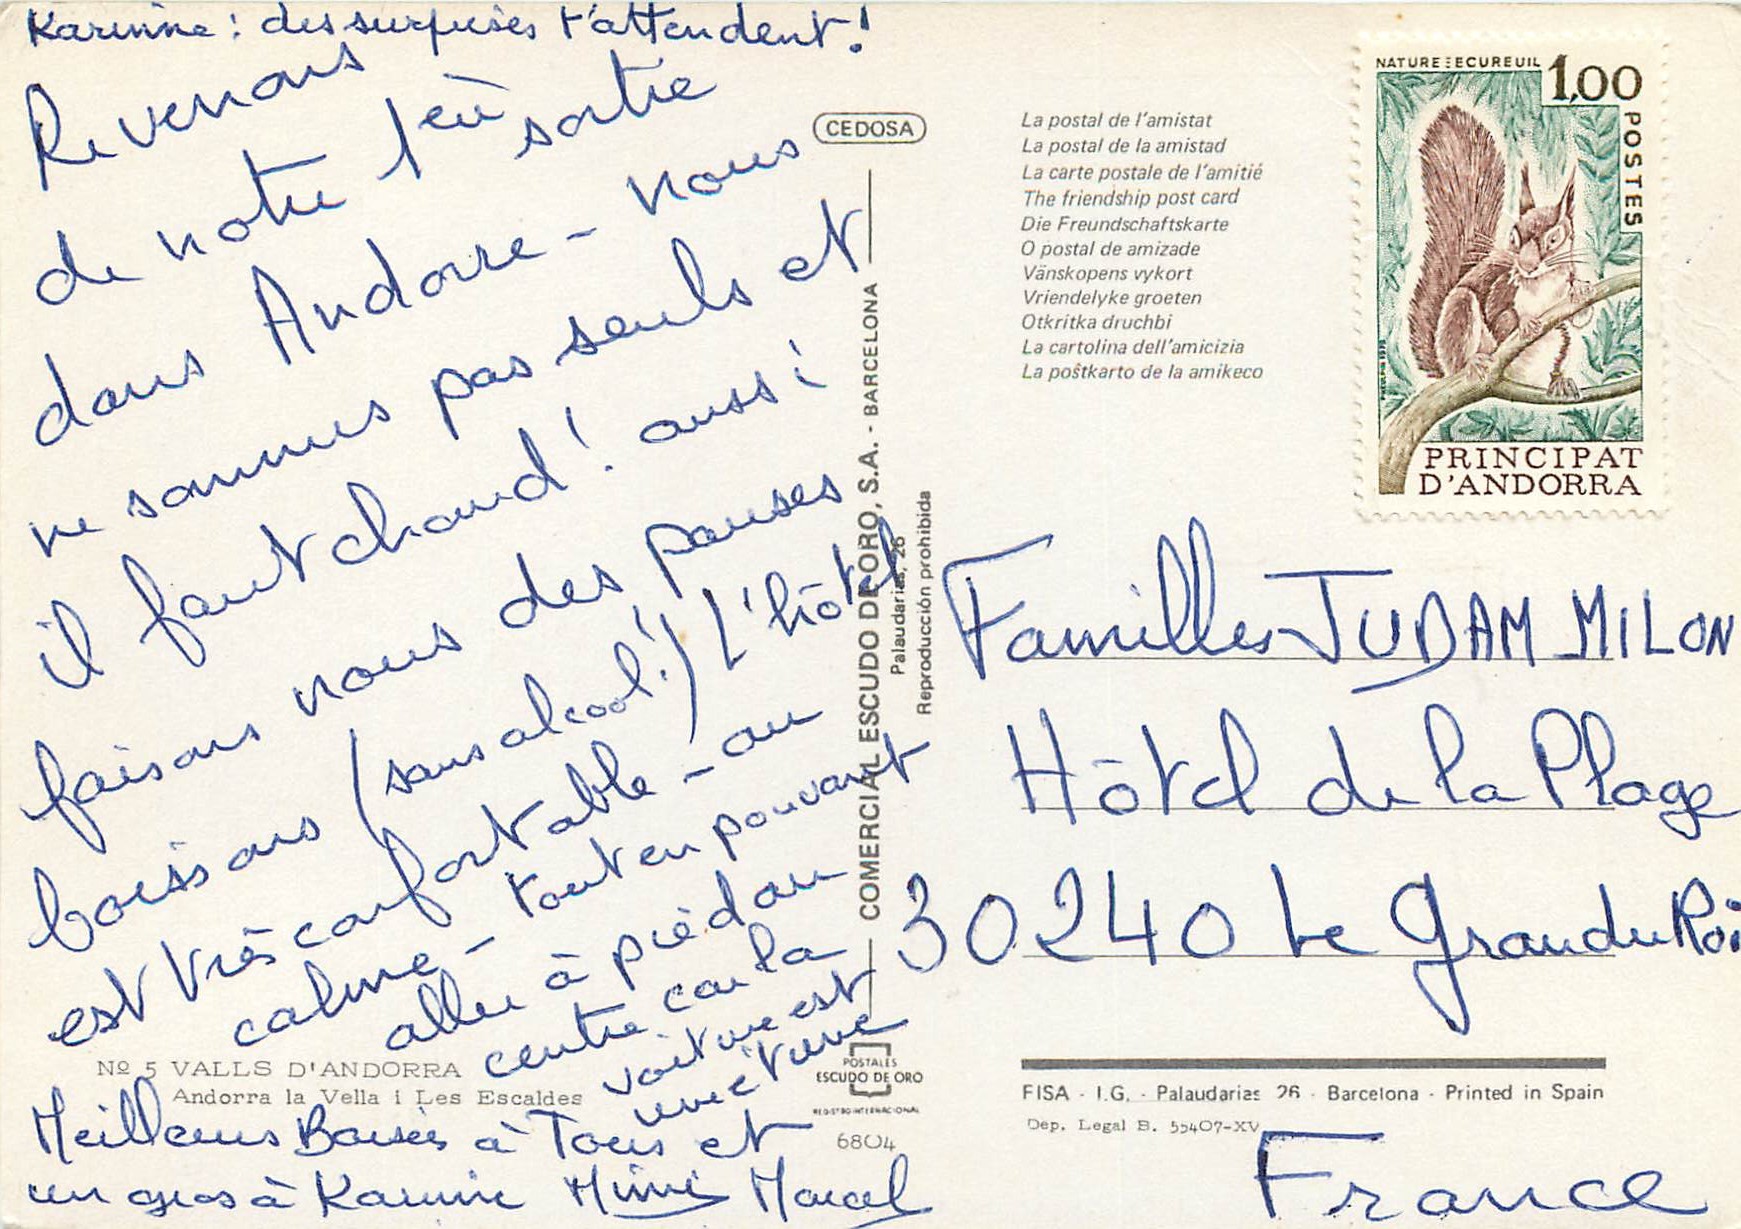 Karinne : des surprises t'attendent !
Revenons
de notre 1ère sortie
dans Andorre - nous
ne sommes pas seuls et
il fait chaud ! aussi
faisons nous des pauses
boissons (sans alcool !) L'hôtel
est très confortable - au
calme - tout en pouvant
aller à pied au
centre car la
voiture est
une
Meilleurs Baisers à Tous et
un gros à Karinne Mimi Marcel
CEDOSA
COMERCIAL ESCUDO DE ORO, S.A. - BARCELONA
Palaudarias, 26
Reproducción prohibida
Nº 5 VALLS D'ANDORRA
Andorra la Vella i Les Escaldes
POSTALES
ESCUDO DE ORO
REGISTRO INTERNACIONAL
6804
La postal de l'amistat
La postal de la amistad
La carte postale de l'amitié
The friendship post card
Die Freundschaftskarte
O postal de amizade
Vänskopens vykort
Vriendelyke groeten
Otkritka druchbi
La cartolina dell'amicizia
La poŝtkarto de la amikeco
NATURE : ECUREUIL
1,00
POSTES
PRINCIPAT
D'ANDORRA
Familles JUDAM MILON
Hôtel de la Plage
30240 Le Grau du Roi
FISA - I.G. - Palaudarias 26 - Barcelona - Printed in Spain
Dep. Legal B. 55407-XV
France